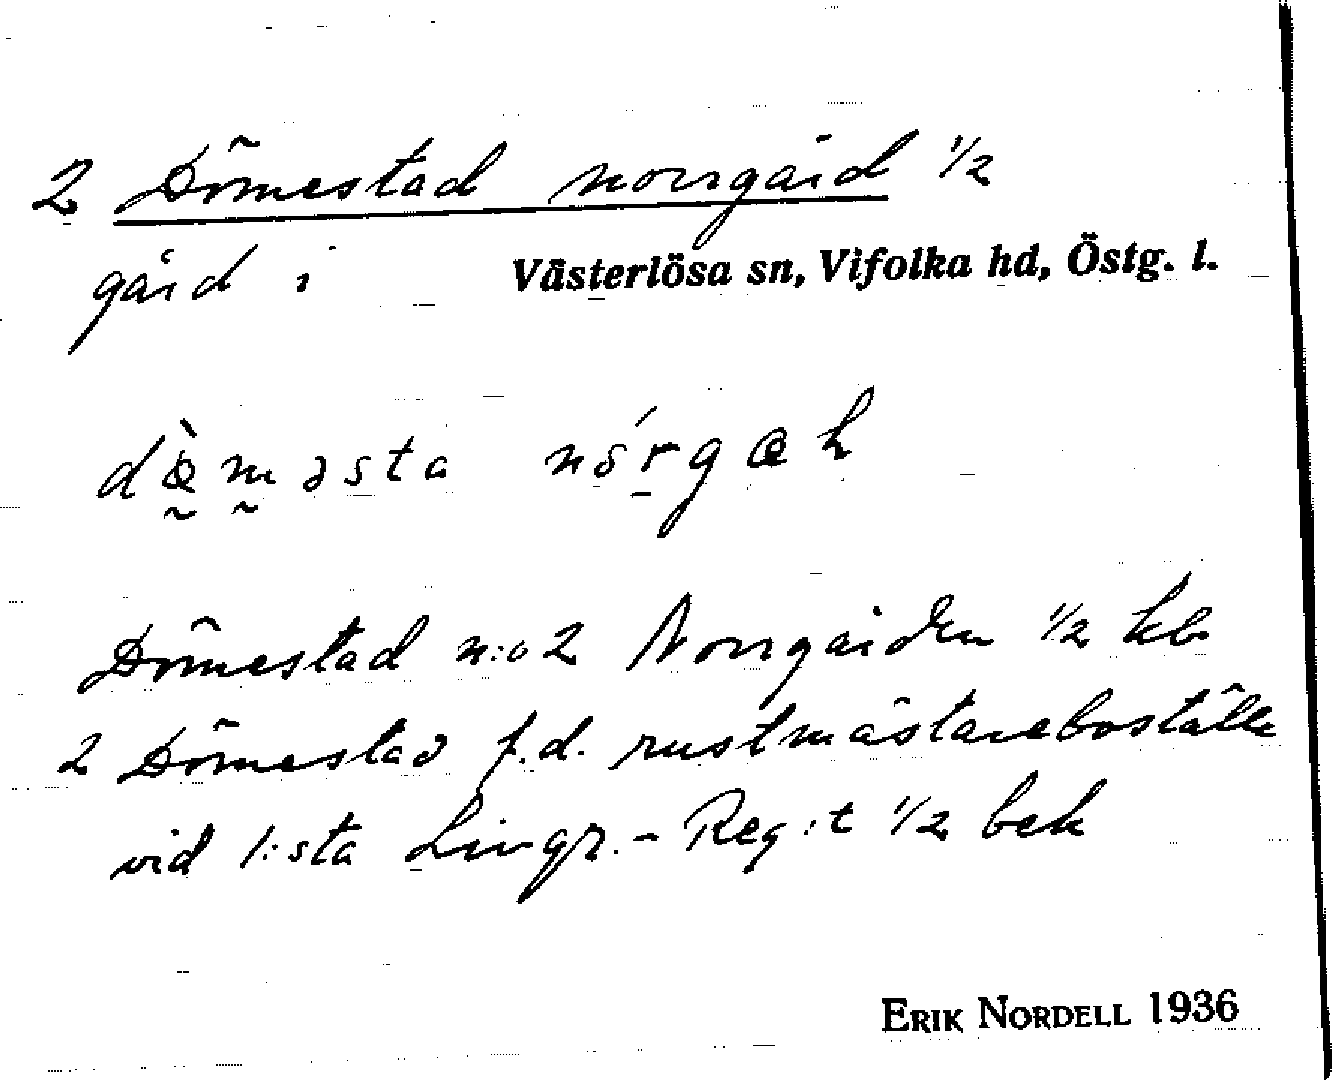 2 Dömestad norrgård 1/2
gård i Västerlösa sn, Vifolka hd, Östg. l.
dœ̀məsta nórgœh
Dömestad n:o 2 Norrgården 1/2 kb
2 Dömestad f.d. rustmästareboställe
vid 1:sta Livgr.-Reg:t 1/2 bek
ERIK NORDELL 1936